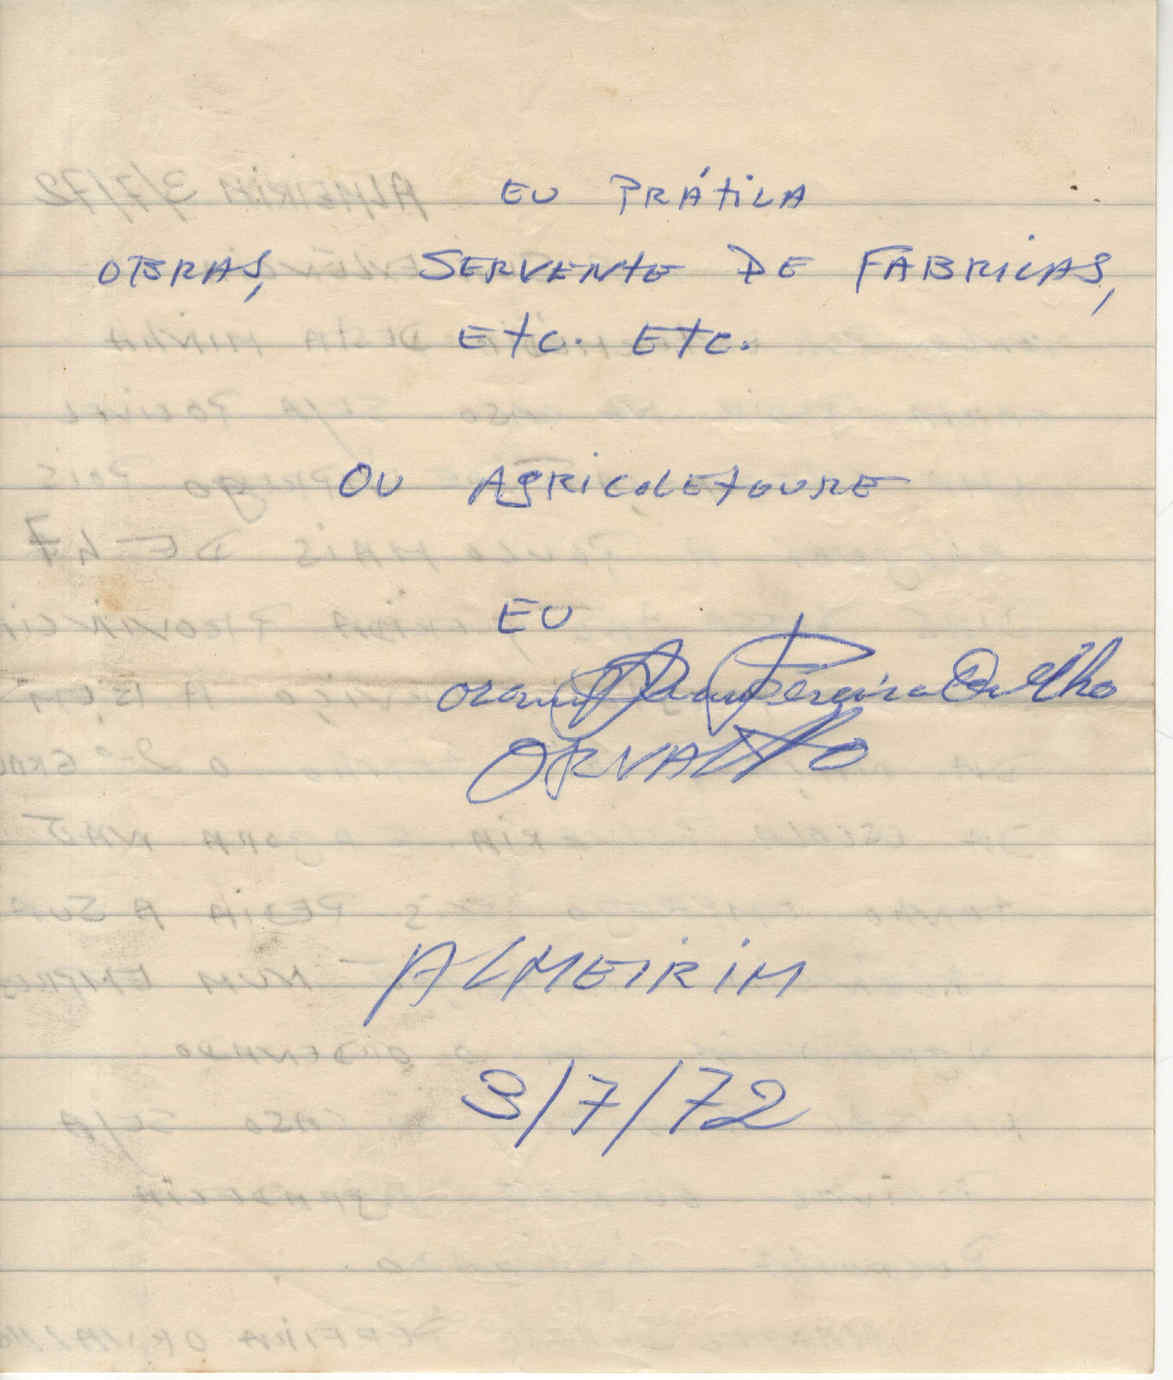 EU PRÁTICA
OBRAS, SERVENTE DE FABRICAS,
ETC. ETC.
OU AGRICOLETOURE
EU
Pereira
ORVALHO
ALMEIRIM
3/7/72